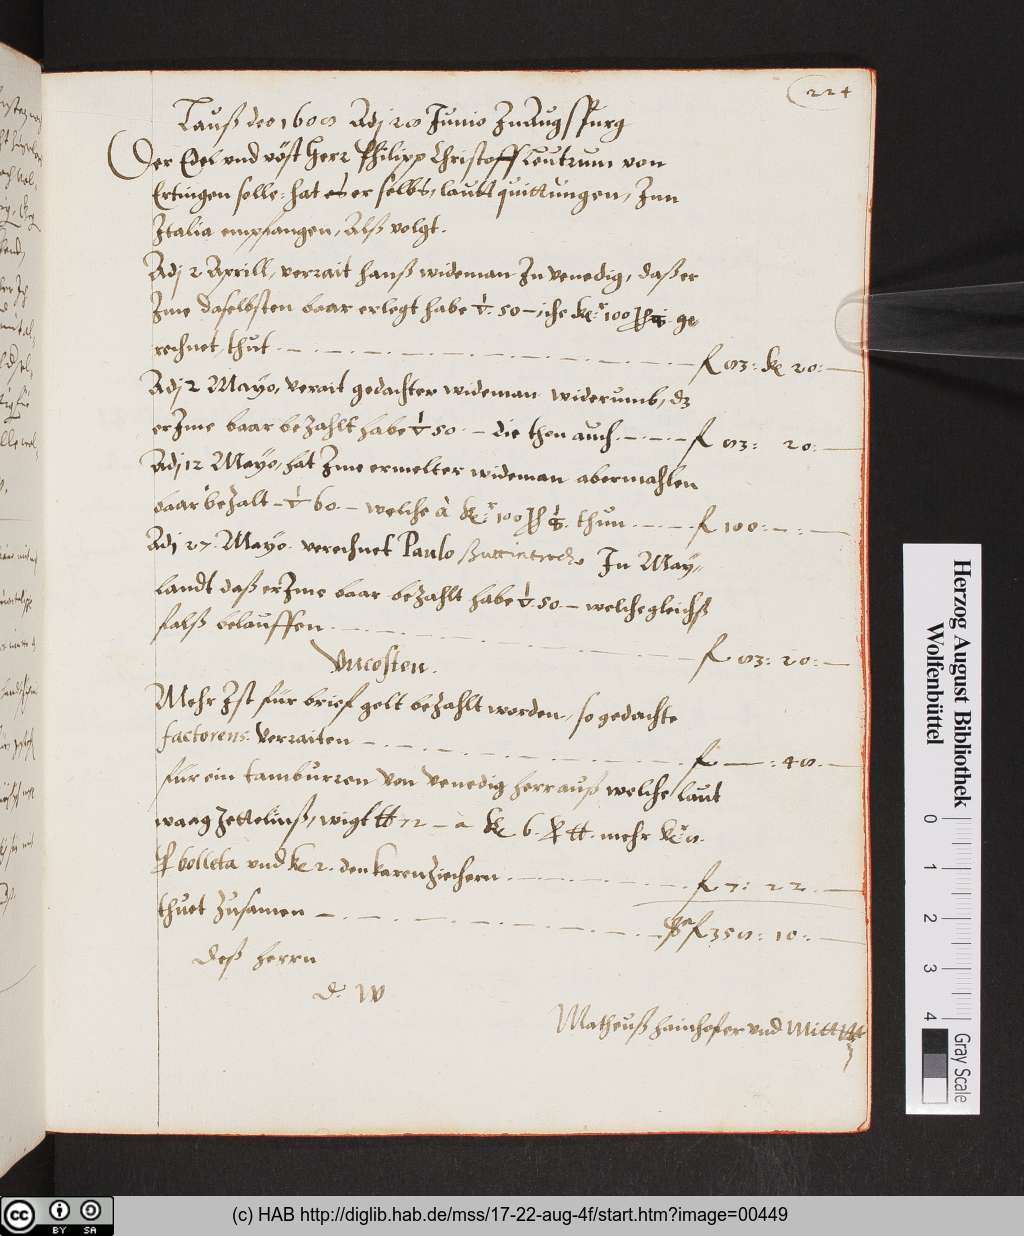 224
Lauß deo 1600 Adj 20 Junio In Augspurg
Der Edel und vöst herr Philipp Christoff Leutrum von
Ertingen solle: hat er selbs, lautt quittungen, Inn
Italia empfangen, Alß volgt.
Adj 2 Aprill, verrait hanß wideman In venedig, daß er
Ime daselbsten baar erlegt habe 50 – 100 ge
rechnet, thut f 83: k 20:
Adj 2 Mayo, verait gedachter wideman widerumb, dz
er Ime baar bezahlt habe 50 – die thon auch f 83: 20:
Adj 12 Mayo, hat Ime ermelter wideman abermahlen
baar bezalt – 60 – welche à k 100 thun f 100: – : –
Adj 27. Mayo. verechnet Paulo In May,,
landt daß er Ime baar bezahlt habe 50 – welche gleichs
falß belauffen f 83: 20: –
Uncosten.
Mehr Ist für brief gelt bezahlt worden, so gedachte
factorens verraiten f — : 40. –
für ein tamburren von venedig herrauß welche laut
waag zettelinß, wigt ℔ 72 – a k 6. ℔. mehr k 8.
bolleta und k 2. den karenziechern f 7: 22. –
thuet zusamen – f 358: 10: –
deß herrn
d. W
Matheuß hainhofer und Mitt
Herzog August Bibliothek
Wolfenbüttel
0 1 2 3 4
Gray Scale
cc BY SA
(c) HAB http://diglib.hab.de/mss/17-22-aug-4f/start.htm?image=00449